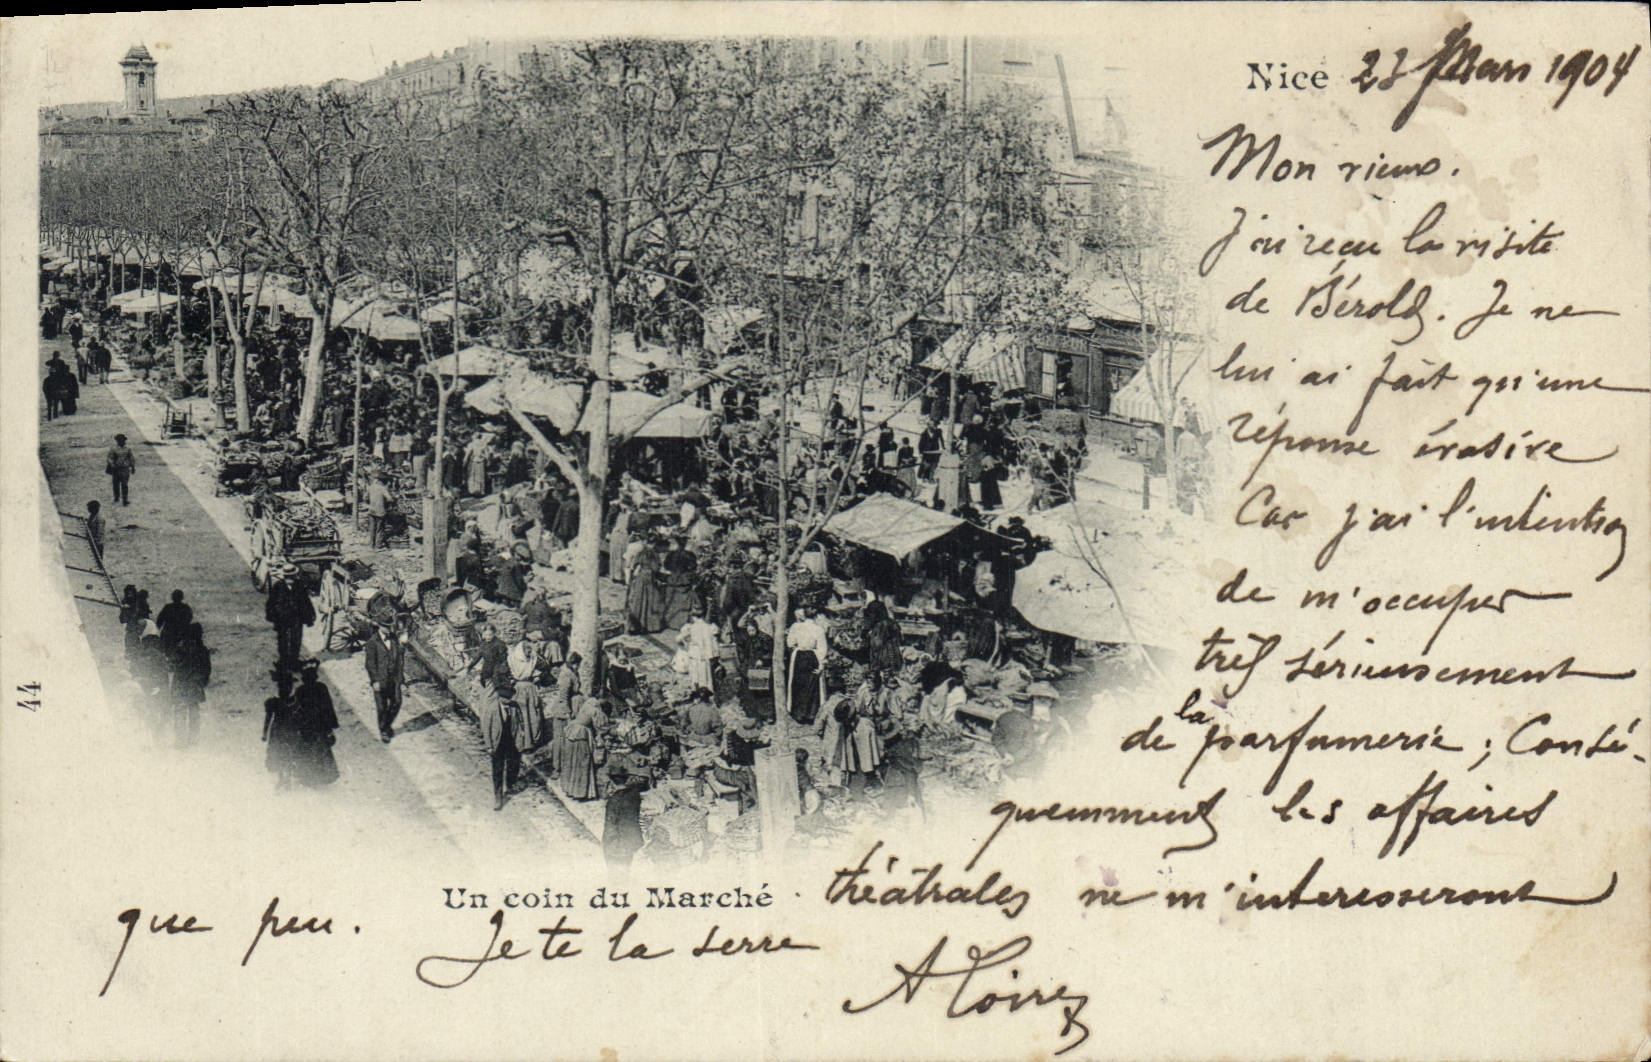 Nice 23 Mars 1904
Mon vieux.
J'ai reçu la visite
de Bérold. Je ne
lui ai fait qu'une
réponse évasive
Car j'ai l'intention
de m'occuper
très sérieusement
de la parfumerie ; Consé-
quemment les affaires
théâtrales ne m'intéresseront
que peu. Je te la serre
Un coin du Marché
44